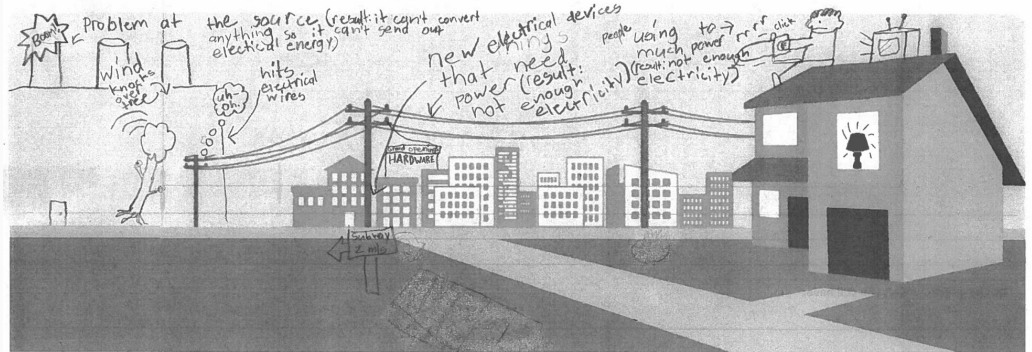 Boom!
Problem at the source (result: it can't convert
anything so it can't send out
electical energy)
wind
knocks
over
tree
uh-
oh!
hits
electrical
wires
new electrical devices
things
that need
power (result:
not enough
electricity)
people using to
much power
(result: not enough
electricity)
rrrr
click
Grand opening
HARDWARE
Subway
2 mi